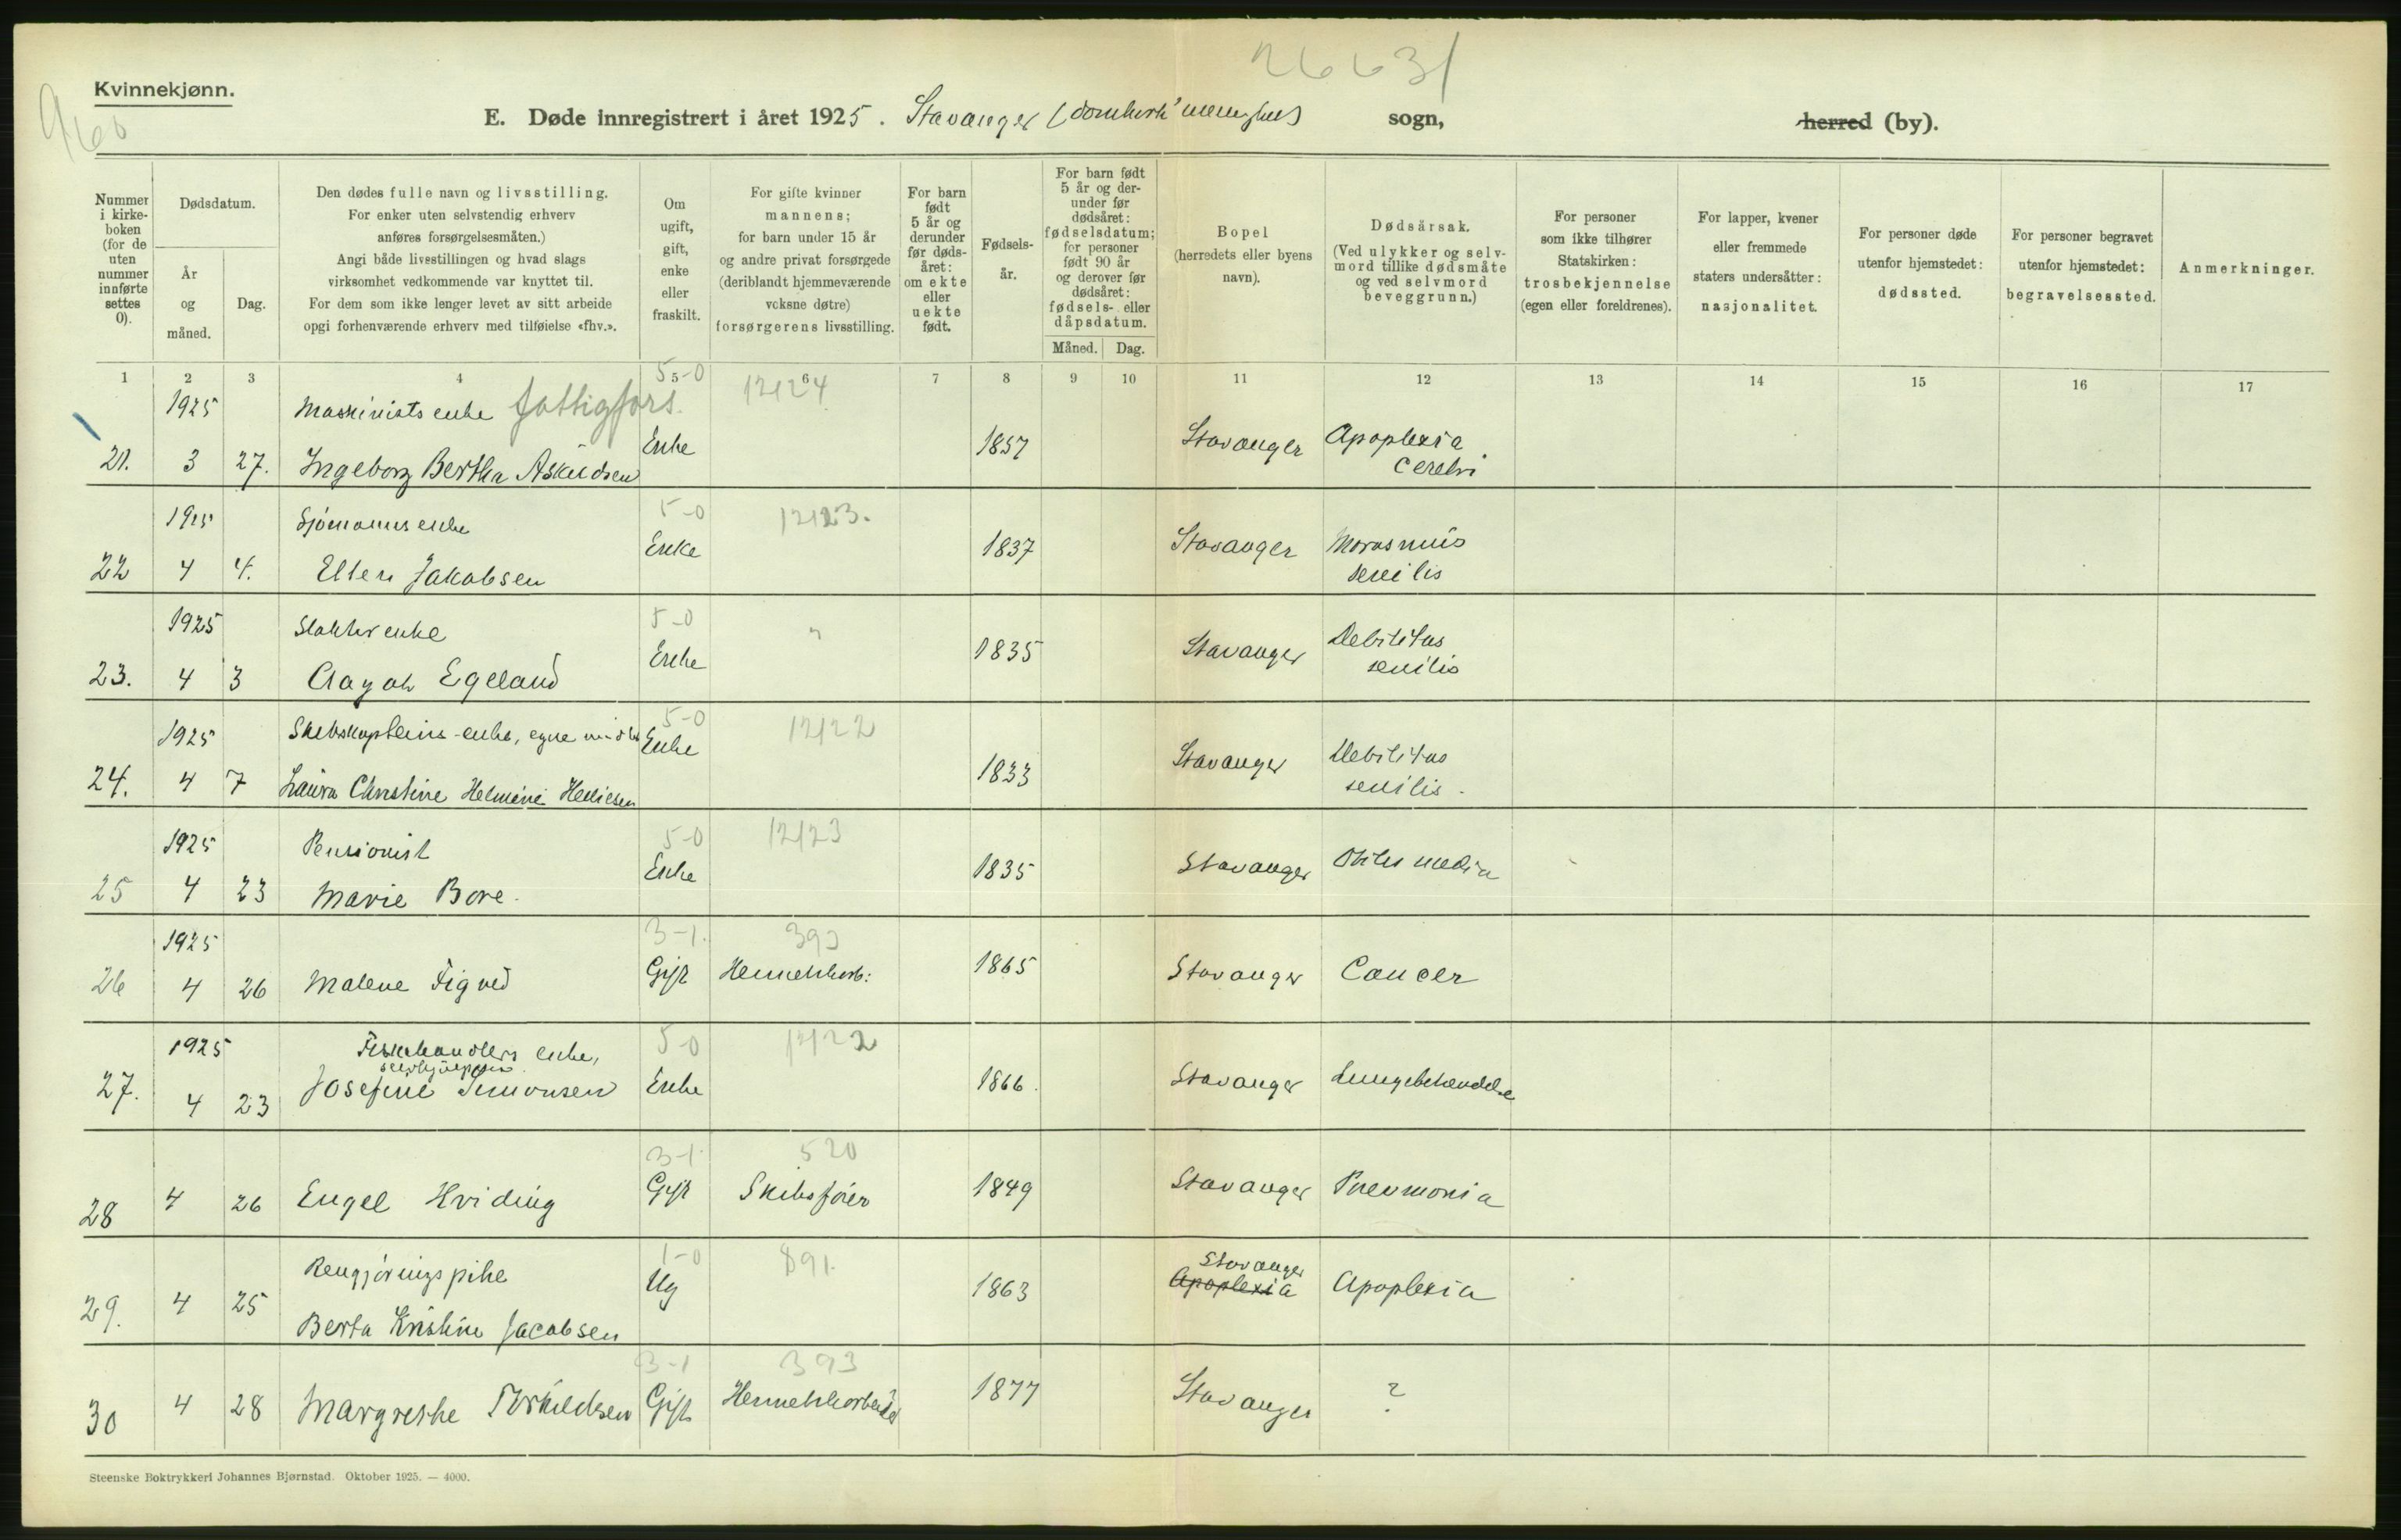 26631
Kvinnekjønn.
960
E. Døde innregistrert i året 1925. Stavanger (domkirk' menighet) sogn, herred (by).
Nummer i kirkeboken (for de uten nummer innførte settes 0).
Dødsdatum.
År og måned.
Dag.
Den dødes fulle navn og livsstilling.
For enker uten selvstendig erhverv
anføres forsørgelsesmåten.)
Angi både livsstillingen og hvad slags
virksomhet vedkommende var knyttet til.
For dem som ikke lenger levet av sitt arbeide
opgi forhenværende erhverv med tilføielse «fhv.».
Om ugift, gift, enke eller fraskilt.
For gifte kvinner
mannens;
for barn under 15 år
og andre privat forsørgede
(deriblandt hjemmeværende
voksne døtre)
forsørgerens livsstilling.
For barn født 5 år og derunder før dødsåret: om ekte eller uekte født.
Fødselsår.
For barn født 5 år og derunder før dødsåret: fødselsdatum; for personer født 90 år og derover før dødsåret: fødsels- eller dåpsdatum.
Måned.
Dag.
Bopel
(herredets eller byens
navn).
Dødsårsak.
(Ved ulykker og selvmord tillike dødsmåte og ved selvmord beveggrunn.)
For personer
som ikke tilhører
Statskirken:
trosbekjennelse
(egen eller foreldrenes).
For lapper, kvener
eller fremmede
staters undersåtter:
nasjonalitet.
For personer døde
utenfor hjemstedet:
dødssted.
For personer begravet
utenfor hjemstedet:
begravelsessted.
Anmerkninger.
1 2 3 4 5 6 7 8 9 10 11 12 13 14 15 16 17
1925 Maskinists enke fattigfors. 5-0 12124
21. 3 27. Ingeborg Bertha Askildsen Enke 1857 Stavanger Apoplexia cerebri
1925 Sjömanns enke 5-0 12123.
22 4 4. Ellen Jakobsen Enke 1837 Stavanger Marasmus senilis
1925 Slakter enke 5-0 "
23. 4 3 Aagot Egeland Enke 1835 Stavanger Debilitas senilis
1925 Skibskapteins-enke, egne midler 5-0 12122
24. 4 7 Laura Christine Helmine Helliesen Enke 1833 Stavanger Debilitas senilis.
1925 Pensionist 5-0 12123
25 4 23 Marie Bore. Enke 1835 Stavanger Otites media
1925 3-1. 393
26 4 26 Malene Tigved Gift Hermetikarb: 1865 Stavanger Cancer
1925 Fiskehandlers enke, 5-0 12122
27. 4 23 Josefine Simonsen Enke 1866. Stavanger Lungebetændelse
3-1. 520
28 4 26 Engel Hviding Gift Skibsförer 1849 Stavanger Pneumonia
Rengjöringspike 1-0 891.
29. 4 25 Berta Kristine Jacobsen Ug 1863 Stavanger Apoplexia Apoplexia
3-1 393
30 4 28 Margrethe Torkildsen Gift Hermetikarbeider 1877 Stavanger ?
Steenske Boktrykkeri Johannes Bjørnstad. Oktober 1925. — 4000.